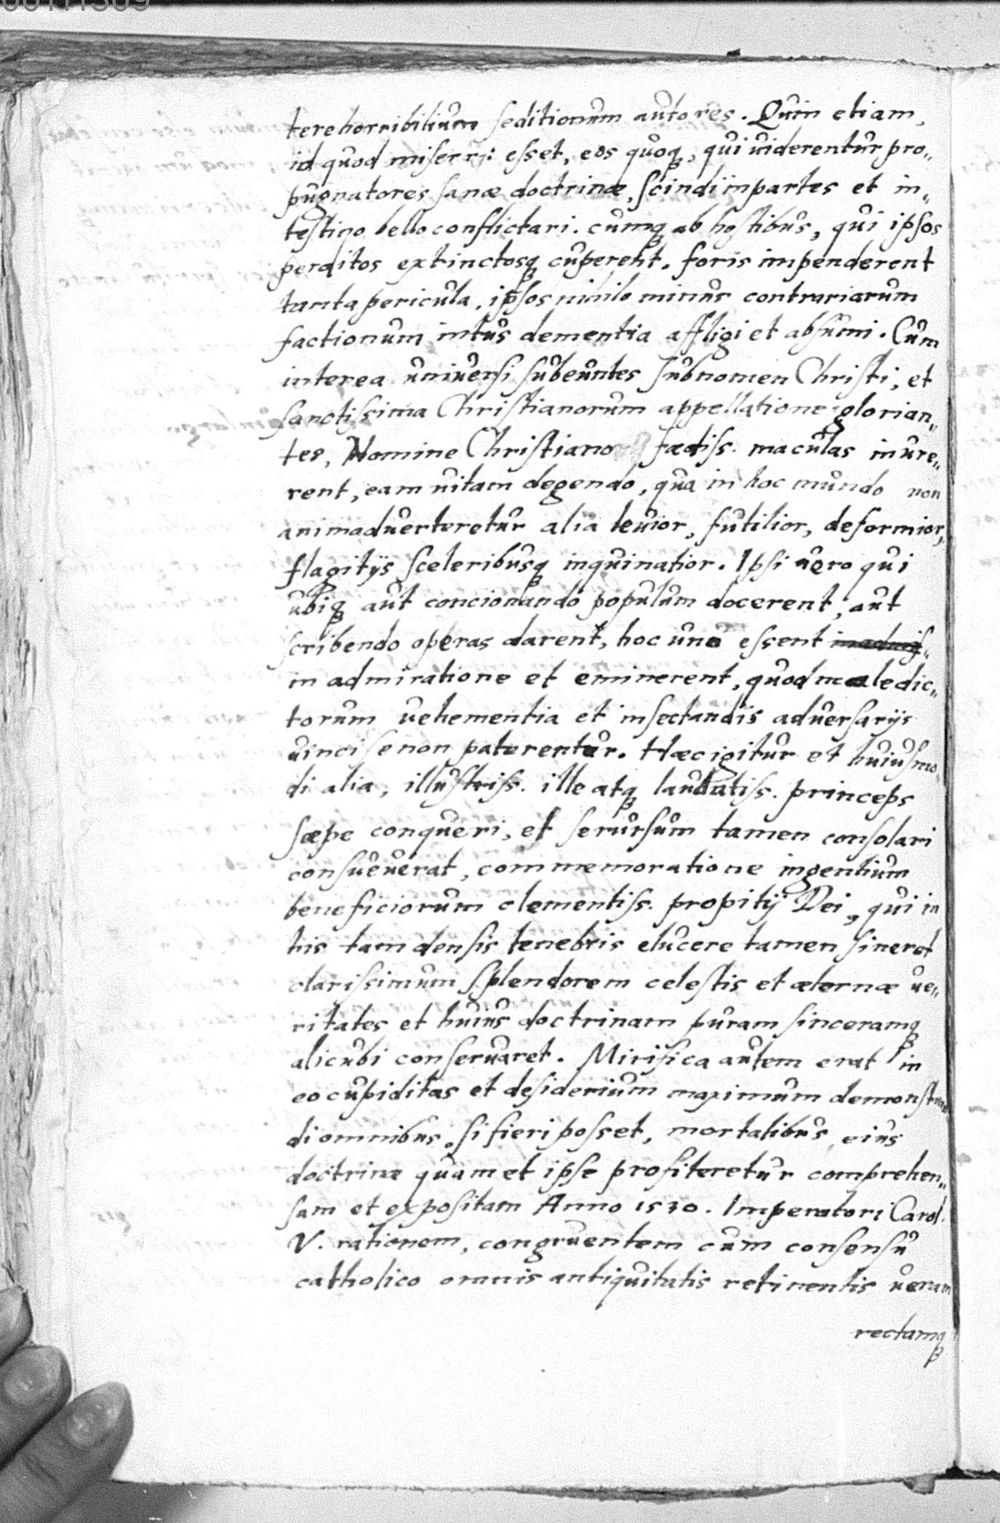 tere horribilium seditionum autores. Quin etiam,
id quod miserr: esset, eos quoq, qui uiderentur pro„
pugnatores sanæ doctrinæ, scindi in partes et in„
testino bello conflictari. cumq ab hostibus, qui ipsos
perditos extinctosq cuperent, foris impenderent
tanta pericula, ipsos nihilo minus contrariarum
factionum intus dementia affligi et absumi. Cum
interea uniuersi subeuntes sub nomen Christi, et
sanctissima Christianorum appellatione glorian„
tes, Nomine Christiano fœdiss. maculas inure„
rent, eam uitam degendo, qua in hoc mundo non
animaduerteretur alia leuior, futilior, deformior,
flagitijs sceleribusq inquinatior. Ipsi uero qui
ubiq aut concionando populum docerent, aut
scribendo operas darent, hoc uno essent
in admiratione et eminerent, quod maledic„
torum uehementia et insectandis aduersarijs
uinci se non paterentur. Hæc igitur et huiusmo„
di alia, illustriss. ille atq laudatiss. princeps
sæpe conqueri, et se rursum tamen consolari
consueuerat, commemoratione ingentium
beneficiorum clementiss. propitij Dei, qui in
his tam densis tenebris elucere tamen sineret
clarissimum splendorem celestis et æternæ ue„
ritates et huius doctrinam puram sinceramq
alicubi conseruaret. Mirifica autem erat in
eo cupiditas et desiderium maximum demonstran
di omnibus, si fieri posset, mortalibus, eius
doctrinæ quam et ipse profiteretur comprehen„
sam et expositam Anno 1530. Imperatori Carol.
V. rationem, congruentem cum consensu
catholico omnis antiquitatis retinentis ueram
rectamq